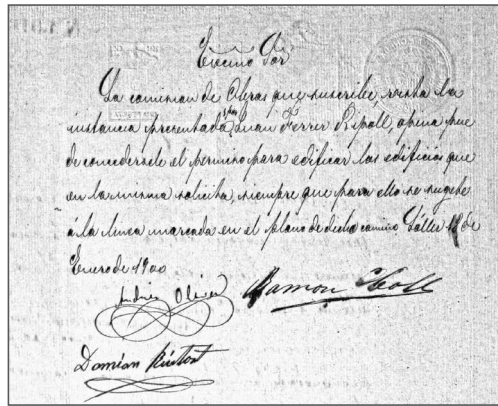 Excmo Sor
La comision de Obras que suscribe, vista la
instancia presentada por Juan Ferrer Ripoll, opina pue
de concedersele el permiso para edificar los edificios que
en la misma solicita, siempre que para ello se sugete
á la linea marcada en el plano de dicho camino Sóller 18 de
Enero de 1900
Andrés Oliver
Ramon
Damián